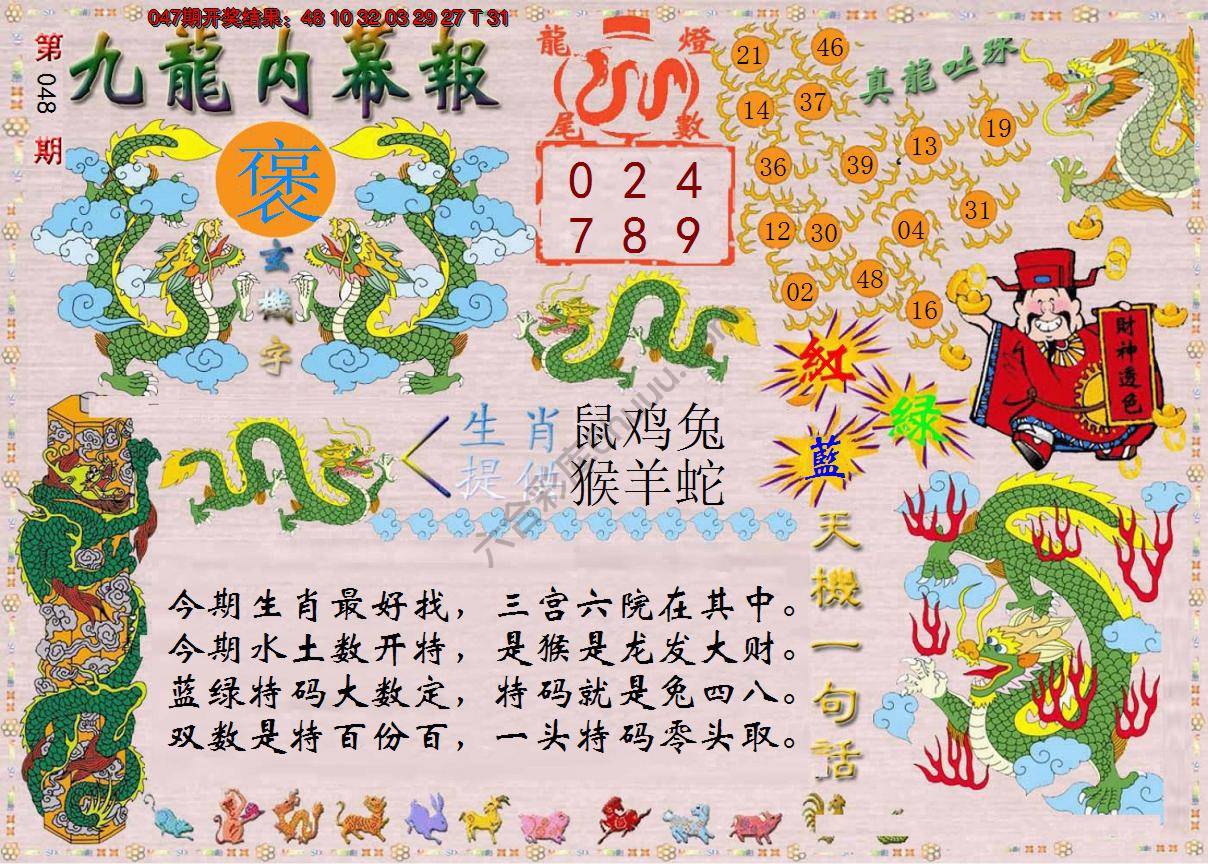 047期开奖结果：48 10 32 03 29 27 T 31
第048期
九龍内幕報
褒
玄機字
龍燈
尾數
0 2 4
7 8 9
真龍吐珠
21 46
14 37
36 39 13 19
12 30 04 31
02 48 16
財神透色
紅
綠
藍
生肖 鼠鸡兔
提供 猴羊蛇
天機一句話
今期生肖最好找，三宫六院在其中。
今期水土数开特，是猴是龙发大财。
蓝绿特码大数定，特码就是兔四八。
双数是特百份百，一头特码零头取。